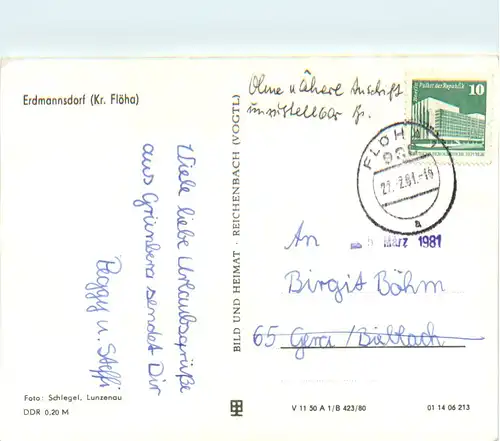 Erdmannsdorf (Kr. Flöha)
Viele liebe Urlaubsgrüße
aus Grünberg sendet Dir
Peggy u. Steffi
Foto: Schlegel, Lunzenau
DDR 0,20 M
BILD UND HEIMAT · REICHENBACH (VOGTL)
Ohne nähere Anschrift
unzustellbar
Palast der Republik
10
DEUTSCHE DEMOKRATISCHE REPUBLIK
FLÖHA
a
5. März 1981
An
Birgit Böhm
65 Gera / Bieblach
V 11 50 A 1/B 423/80
01 14 06 213